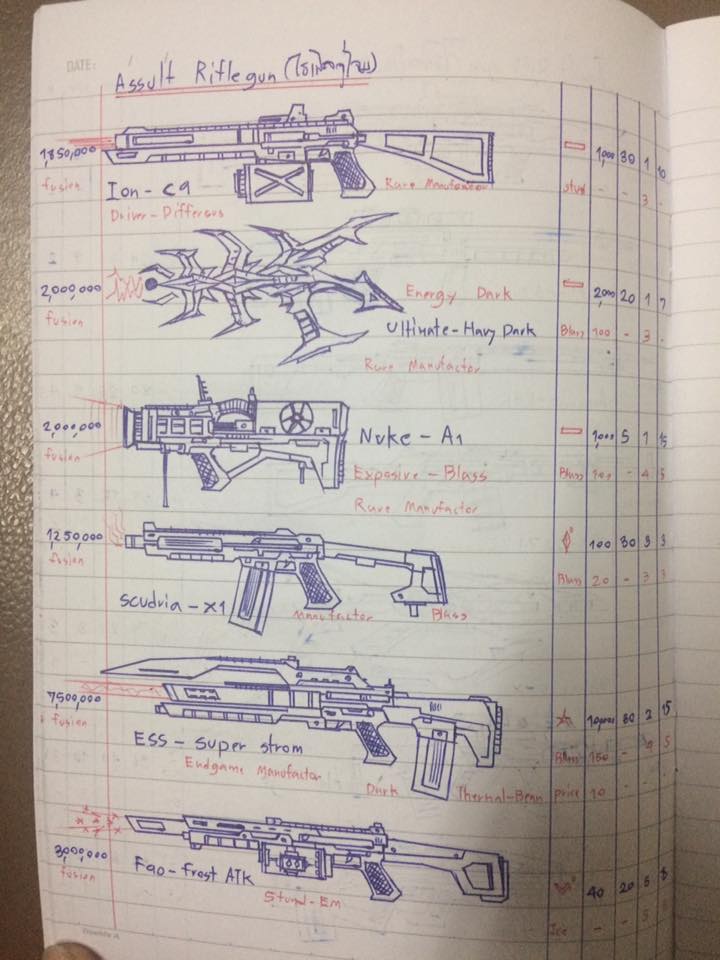 DATE:
Assult Riflegun
1,850,000 1,000 30 1 10
fusion Rare Manufactor 3
Ion - C9
Driver - Differous
2,000,000 Energy Dark 2,000 20 1 7
fusion Ultimate - Havy Dark Blass 100 - 3
Rare Manufactor
2,000,000 Nuke - A1 1,000 5 1 15
fusion Exposive - Blass Blass - 4 5
Rare Manufactor
1,250,000 100 30 3 3
fusion Blass 20 - 3 3
Scudria - X1 Manufactor Blass
7,500,000 30 2 15
fusion ESS - Super strom 150 - 5
Endgame Manufactor
Dark Thermal - Bean price 10 -
3,000,000 F90 - frost ATK 40 20 5 8
fusion Stund - Em
Ice - - 5